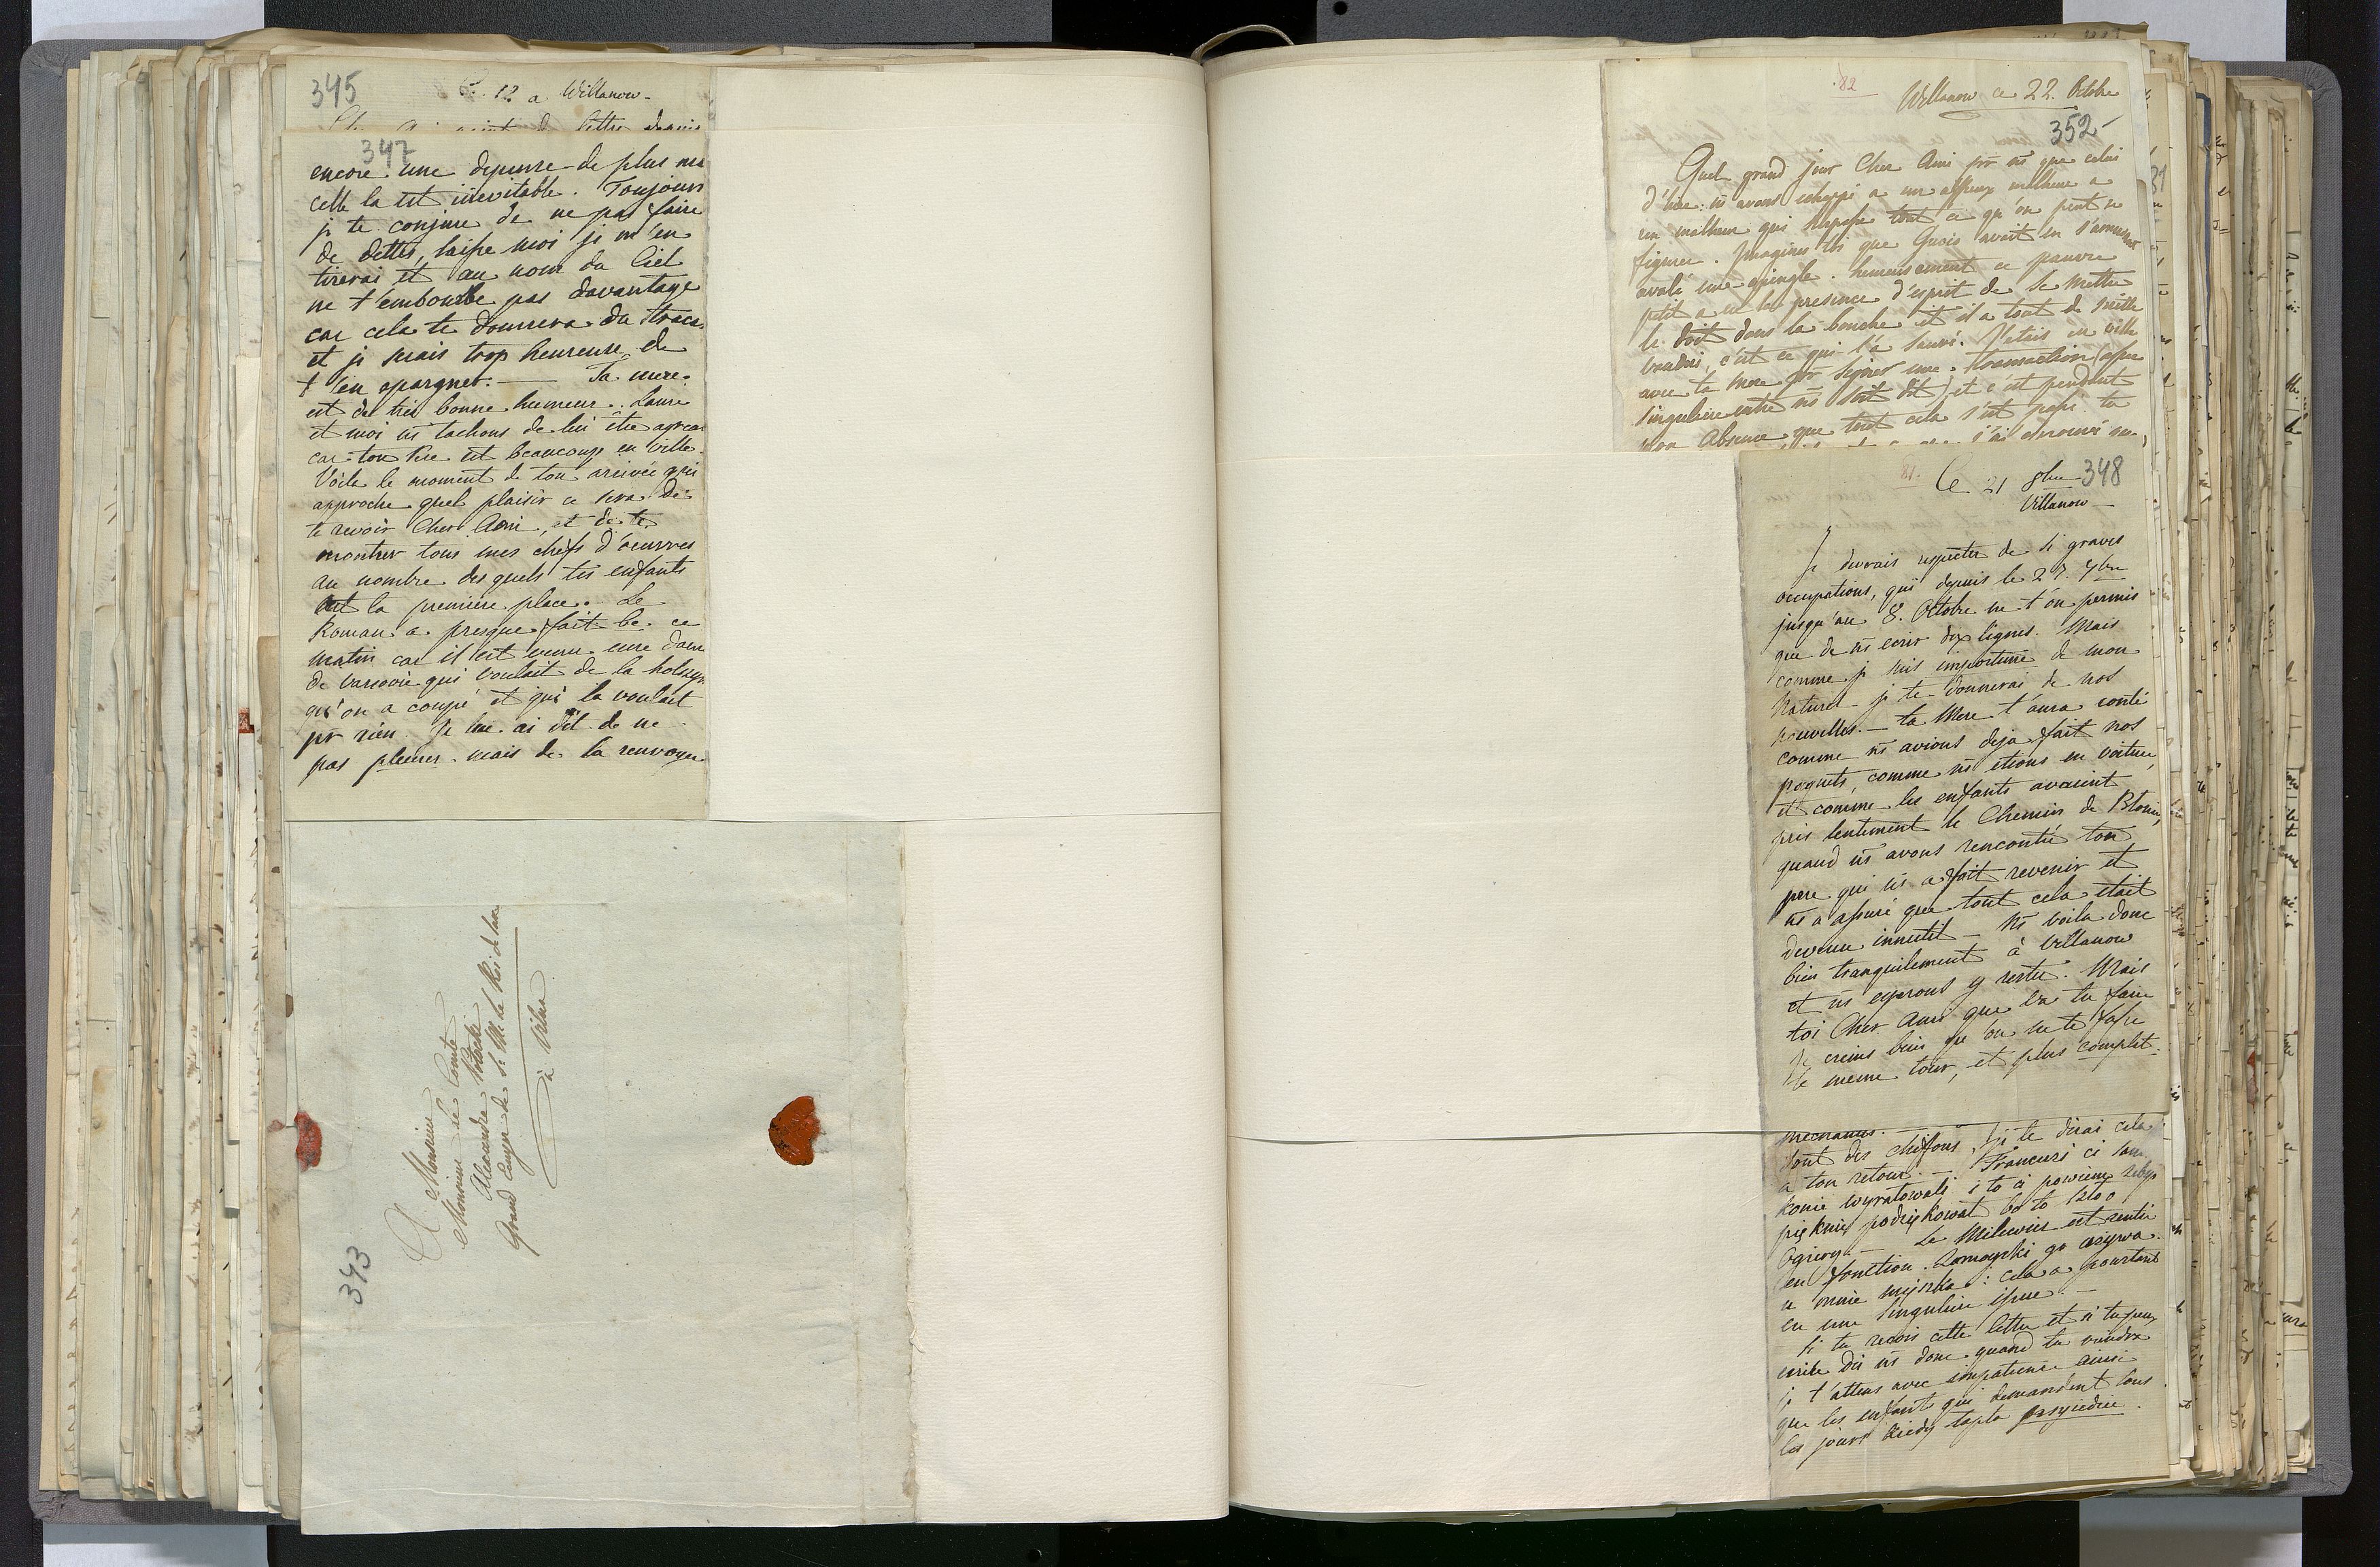 345
Ce 12 a Willanow -
347
encore une depense de plus ms
celle la est inevitable. Toujours
je te conjure de ne pas faire
de dettes, laisse moi je m'en
tirerai et au nom du Ciel
ne t'embourbe pas davantage
car cela te donnera du tracas
et je serais trop heureuse de
t'en epargner. — Ta mere
est de tres bonne humeur. Laure
et moi ns tachons de lui être agrea
car ton Pere est beaucoup en ville.
Voila le moment de ton arrivée qui
approche quel plaisir ce sera de
te revoir Cher Ami, et de te
montrer tous mes chefs d'oeuvres
au nombre des quels tes enfants
ont la premiere place. - Le
Roman a presque fait be ce
matin car il est venu une dame
de Varsovie qui voulait de la
qu'on a coupé et qui la voulait
pr rien. Je lui ai dit de ne
pas pleurer mais de la renvoyer
343
A Monsieur
Monsieur le Comte
Alexandre Potocki
Grand Ecuyer de S. M. le Roi de Saxe
à Vilna
82
Willanow ce 22. Octobre
352
Quel grand jour Cher Ami pr ns que celui
d'hier: ns avons echappé a un affreux malheur a
un malheur qui surpasse tout ce qu'on peut se
figurer. Imagines toi que Gucio avait en s'amusant
avalé une epingle. heureusement ce pauvre
petit a eu la presence d'esprit de se mettre
le doit dans la bouche et il a tout de suite
vomi, c'est ce qui l'a sauvé. J'etais en ville
avec ta Mere pr signer une transaction (assez
singuliere entre ns soit dit) et c'est pendant
mon Absence que tout cela s'est passé. tu
81.
Ce 21 8bre 348
Villanow -
Je devrais respecter de si graves
occupations, qui depuis le 27. 7bre
jusqu'au 8. Octobre ne t'on permis
que de ns ecrir dix lignes. Mais
comme je suis importune de mon
Naturel je te donnerai de nos
nouvelles. - ta Mere t'aura conté
comme ns avions deja fait nos
paquets, comme ns etions en voiture,
et comme les enfants avaient
pris lentement le Chemin de Blonie,
quand ns avons rencontré ton
pere qui ns a fait revenir et
ns a assuré que tout cela était
devenu innutil - Ns voila donc
bien tranquilement à Villanow
et ns esperons y rester. Mais
toi Cher Ami que va tu faire
Je crains bien qu'on ne te fasse
le meme tour, et plus complet.
sont des chiffons, je te dirai cela
a ton retour. - Francuzi ci
konie wyratowali i to ci powiem żebyś
pięknie podziękował bo to
Ogiery. - Le Milewicz est rentré
en fonction. Zamoyski go
u mnie : cela a pourtant
eu une singuliere issue. -
Si tu recois cette lettre et si tu peux
ecrire dis ns donc quand tu viendra
je t'attens avec impatience ainsi
que les enfants qui demandent tous
les jours kiedy tapta przyiedzie.